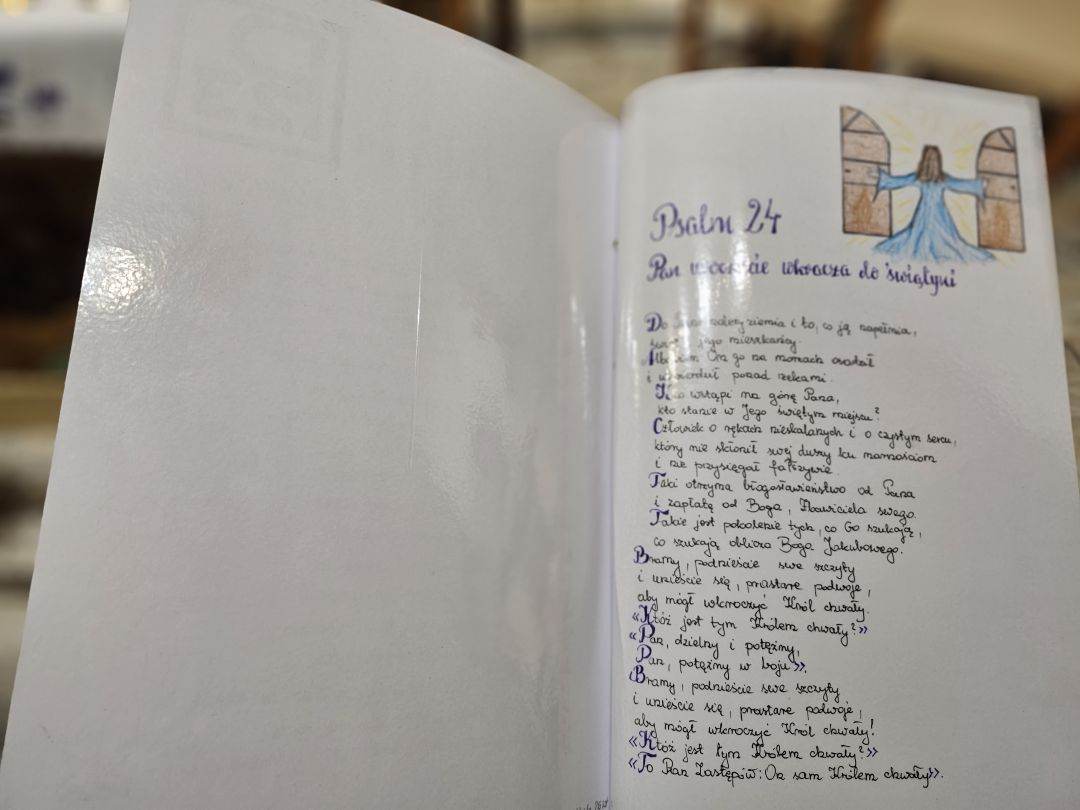 Psalm 24
Pan uroczyście wkracza do świątyni
Do Pana należy ziemia i to, co ją napełnia,
jego mieszkańcy.
Albowiem On go na morzach osadził
i utwierdził ponad rzekami.
Kto wstąpi na górę Pana,
kto stanie w Jego świętym miejscu?
Człowiek o rękach nieskalanych i o czystym sercu,
który nie skłonił swej duszy ku marnościom
i nie przysięgał fałszywie.
Taki otrzyma błogosławieństwo od Pana
i zapłatę od Boga, Zbawiciela swego.
Takie jest pokolenie tych, co Go szukają,
co szukają oblicza Boga Jakubowego.
Bramy, podnieście swe szczyty
i unieście się, prastare podwoje,
aby mógł wkroczyć Król chwały.
«Któż jest tym Królem chwały?»
«Pan, dzielny i potężny,
Pan, potężny w boju».
Bramy, podnieście swe szczyty
i unieście się, prastare podwoje,
aby mógł wkroczyć Król chwały!
«Któż jest tym Królem chwały?»
«To Pan Zastępów: On sam Królem chwały».